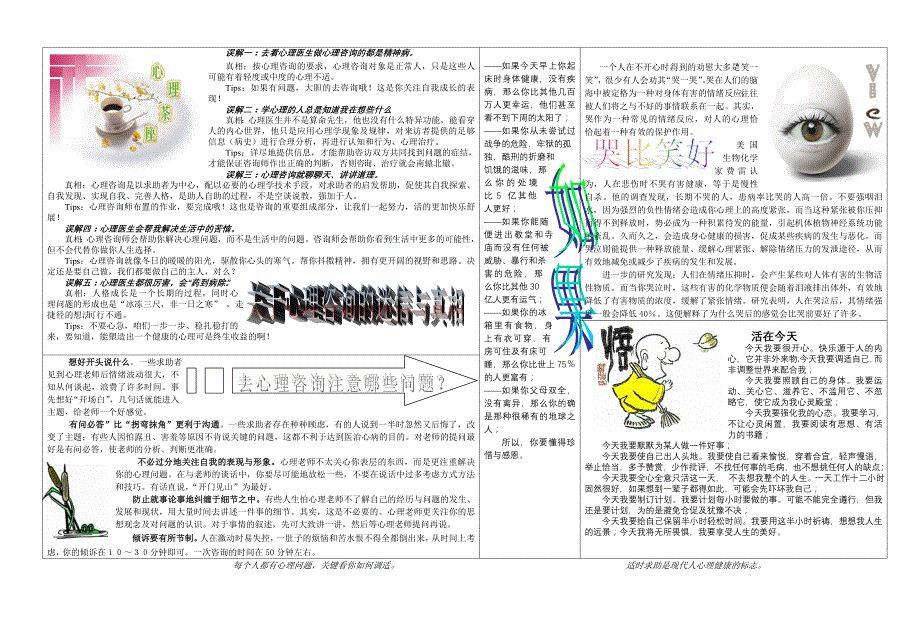 心理茶座
误解一：去看心理医生做心理咨询的都是精神病。
真相：按心理咨询的要求，心理咨询对象是正常人，只是这些人
可能有着轻度或中度的心理不适。
Tips：如果有问题，大胆的去咨询哦！这是你关注自我成长的表
现！
误解二：学心理的人总是知道我在想些什么
真相：心理医生并不是算命先生，他也没有什么特异功能，能看穿
人的内心世界，他只是应用心理学现象及规律，对来访者提供的足够
信息（病史）进行合理分析，再进行认知和行为、心理治疗。
Tips：详尽地提供信息，才能帮助咨询双方共同找到问题的症结，
才能保证咨询师作出正确的判断，否则咨询、治疗就会南辕北辙。
误解三：心理咨询就聊聊天、讲讲道理。
真相：心理咨询是以求助者为中心，配以必要的心理学技术手段，对求助者的启发帮助，促使其自我探索、
自我发现、实现自我、完善人格，是助人自助的过程，不是空谈说教，强加于人。
Tips：心理咨询师布置的作业，要完成哦！这也是咨询的重要组成部分，让我们一起努力，活的更加快乐舒
展！
误解四：心理医生会帮我解决生活中的苦恼。
真相：心理咨询师会帮助你解决心理问题，而不是生活中的问题，咨询师会帮助你看到生活中更多的可能性，
但不会代替你做你人生选择。
Tips：心理咨询就像冬日的暖暖的阳光，驱散你心头的寒气，帮你抖擞精神，拥有更开阔的视野和思路。决
定还是要自己做，我们都要做自己的主人，对么？
误解五：心理医生都很厉害，会“药到病除”
真相：人格成长是一个长期的过程，同时心
理问题的形成也是“冰冻三尺，非一日之寒”，走
捷径的想法行不通。
Tips：不要心急，咱们一步一步、稳扎稳打的
来，要知道，能塑造出一个健康的心理可是终生收益的啊！
关于心理咨询的误解与真相
去心理咨询注意哪些问题？
想好开头说什么。一些求助者
见到心理老师后情绪波动很大，不
知从何谈起，浪费了许多时间。事
先想好“开场白”，几句话就能进入
主题，给老师一个好感觉。
有问必答”比“拐弯抹角”更利于沟通。一些求助者存在种种顾虑，有的人说到一半时忽然又后悔了，改
变了主题；有些人因怕露丑、害羞等原因不肯说关键的问题，这都不利于达到医治心病的目的。对老师的提问最
好是有问必答，使老师的分析、判断更准确。
不必过分地关注自我的表现与形象。心理老师不太关心你表层的东西，而是更注重解决
你的心理问题。在与老师的谈话中，你要尽可能地放松一些，不要在说话中过多考虑方式方法
和技巧。有话直说，“开门见山”为最好。
防止就事论事地纠缠于细节之中。有些人生怕心理老师不了解自己的经历与问题的发生、
发展和现状，用大量时间去讲述一件事的细节。其实，这是不必要的。心理老师更关注你的思
想观念及对问题的认识。对于事情的叙述，先可大致讲一讲，然后等心理老师提问再说。
倾诉要有所节制。人在激动时易失控，一肚子的烦恼和苦水恨不得全都倒出来，从时间上考
虑，你的倾诉在10～30分钟即可。一次咨询的时间在50分钟左右。
每个人都有心理问题，关键看你如何调适。
如果
——如果今天早上你起
床时身体健康，没有疾
病，那么你比其他几百
万人更幸运，他们甚至
看不到下周的太阳了；
——如果你从未尝试过
战争的危险，牢狱的孤
独，酷刑的折磨和
饥饿的滋味，那
么你的处境
比5亿其他
人更好；
——如果你能随
便进出教堂和寺
庙而没有任何被
威胁、暴行和杀
害的危险，那
么你比其他30
亿人更有运气；
——如果你的冰
箱里有食物，身
上有衣可穿，有
房可住及有床可
睡，那么你比世上75%
的人更富有；
——如果你父母双全，
没有离异，那么你的确
是那种很稀有的地球之
人；
所以，你要懂得珍
惜与感恩。
View
哭比笑好
一个人在不开心时得到的劝慰大多是“笑一
笑”，很少有人会劝其“哭一哭”。哭在人们的脑
海中被定格为一种对身体有害的情绪反应，往往
被人们将之与不好的事情联系在一起。其实，
哭作为一种常见的情绪反应，对人的心理恰
恰起着一种有效的保护作用。
美国
生物化学
家费雷认
为，人在悲伤时不哭有害健康，等于是慢性
自杀。他的调查发现，长期不哭的人，患病率比哭的人高一倍。不要强咽泪
水，因为强烈的负性情绪会造成你心理上的高度紧张，而当这种紧张被你压抑
而得不到释放时，势必成为一种积累待发的能量，引起机体植物神经系统功能
的紊乱。久而久之，会造成身心健康的损害，促成某些疾病的发生与恶化。而
哭泣则能提供一种释放能量、缓解心理紧张、解除情绪压力的发泄途径，从而
有效地减免或减少了疾病的发生和发展。
进一步的研究发现：人们在情绪压抑时，会产生某些对人体有害的生物活
性物质。而当你哭泣时，这些有害的化学物质便会随着泪液排出体外，有效地
降低了有害物质的浓度，缓解了紧张情绪。研究表明，人在哭泣后，其情绪强
度一般会降低40%，这便解释了为什么哭后的感觉会比哭前要好了许多。
悟
活在今天
今天我要很开心。快乐源于人的内
心，它并非外来物；今天我要调适自己，而
非调整世界来配合我；
今天我要照顾自己的身体。我要运
动、关心它、滋养它、不滥用它、不忽
略它，使它成为我心灵殿堂；
今天我要强化我的心态。我要学习，
不让心灵闲置，我要阅读有思想、有活
力的书籍；
今天我要默默为某人做一件好事；
今天我要使自己出人头地。我要使自己看来愉悦，穿着合宜，轻声慢语，
举止恰当，多予赞赏，少作批评，不找任何事的毛病，也不想挑任何人的缺点；
今天我要全心全意只活这一天，不去想我整个的人生。一天工作十二小时
固然很好，如果想到一辈子都得如此，可能会先吓坏我自己；
今天我要制订计划。我要计划每小时要做的事。可能不能完全遵行，但我
还是要计划，为的是避免仓促及犹豫不决；
今天我要给自己保留半小时轻松时间。我要用这半小时祈祷，想想我人生
的远景；今天我将无所畏惧，我要享受人生的美好。
适时求助是现代人心理健康的标志。